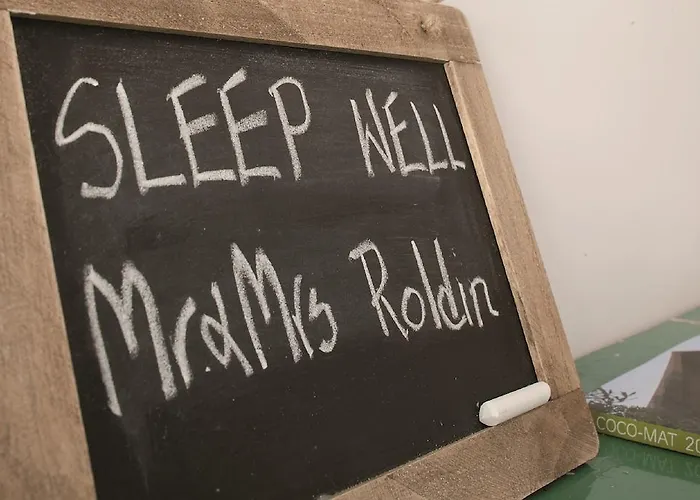 SLEEP WELL
Mr & Mrs Roldin
COCO-MAT 20